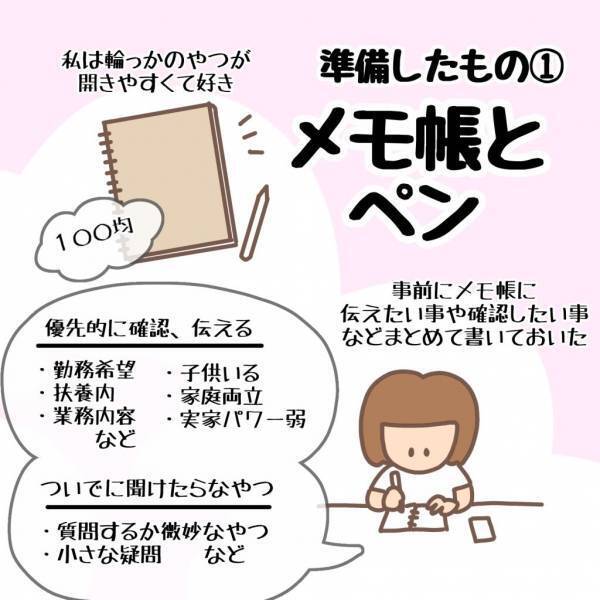 準備したもの①
メモ帳と
ペン
私は輪っかのやつが
開きやすくて好き
100均
事前にメモ帳に
伝えたい事や確認したい事
などまとめて書いておいた
優先的に確認、伝える
・勤務希望
・扶養内
・業務内容
など
・子供いる
・家庭両立
・実家パワー弱
ついでに聞けたらなやつ
・質問するか微妙なやつ
・小さな疑問 など